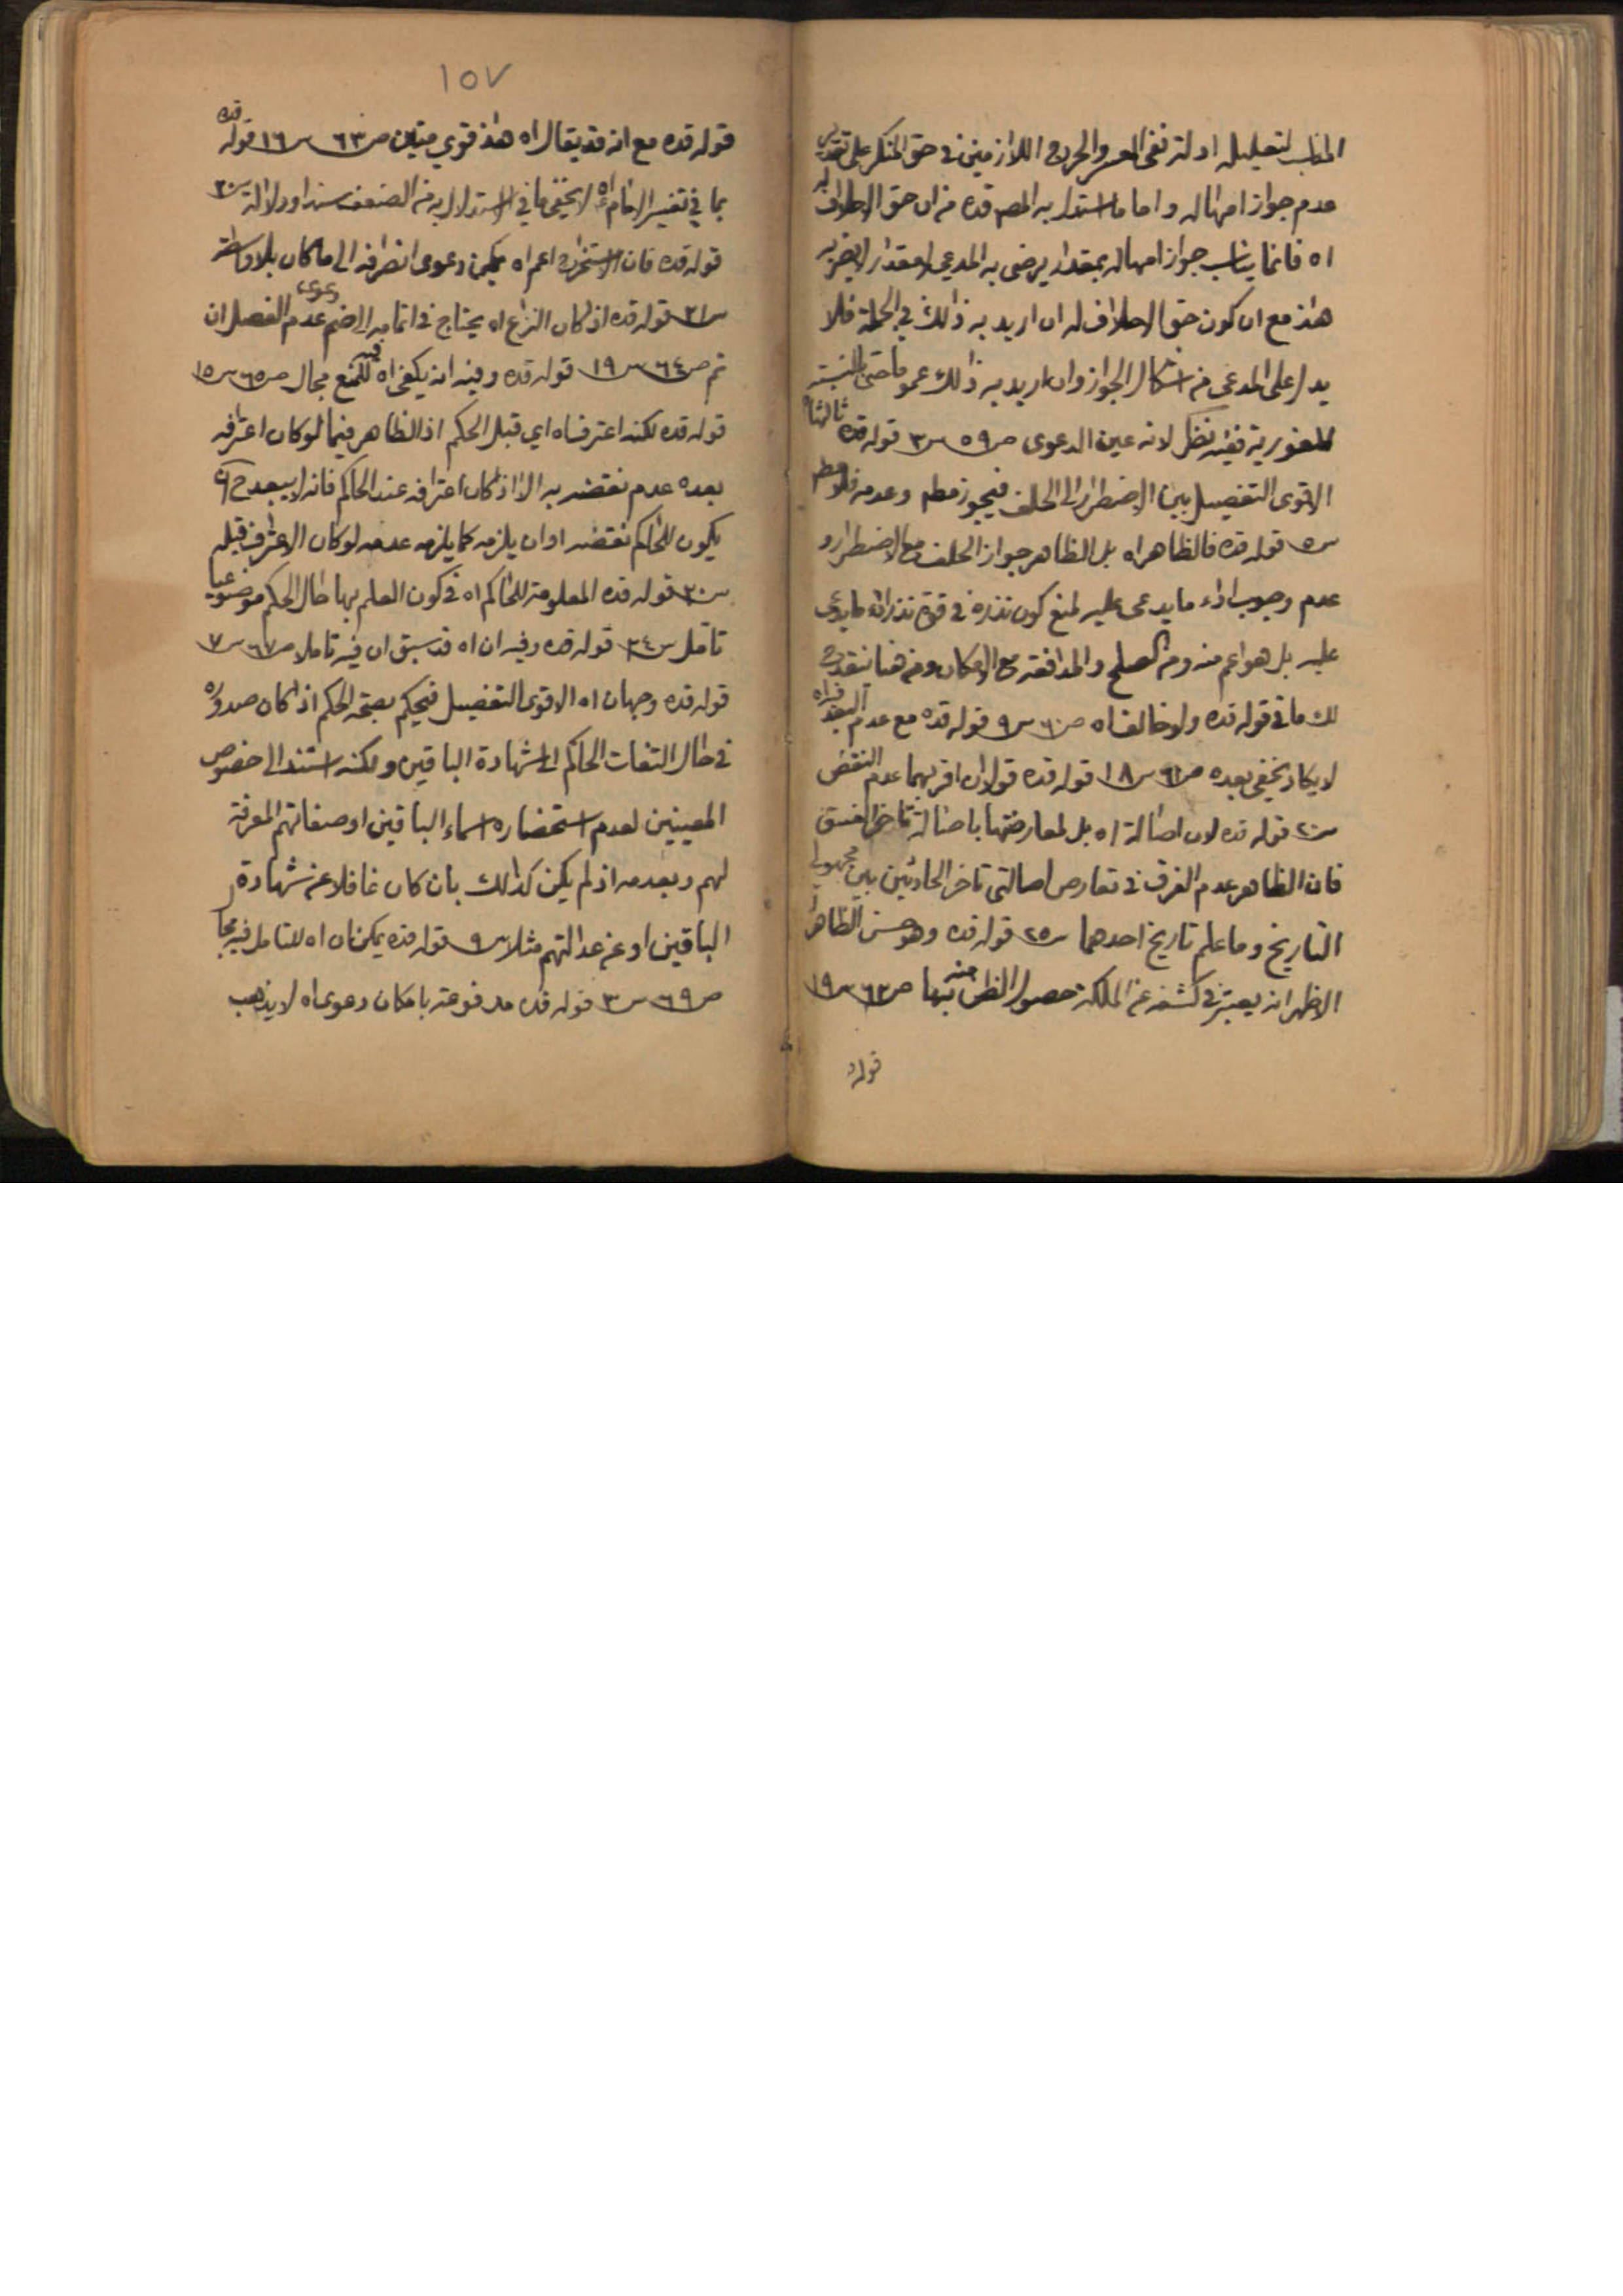 المناسب لتعليله ادلة نفى العسر والحرج اللازمين فى حق المنكر على تقدير
عدم جواز امهاله واما ما استدل به المص قده من ان حق الاحلاف له
اه فانما يناسب جواز امهاله بمقدار يرضى به المدعي او مقدار لا يضر به
هذا مع ان كون حق الاحلاف له ان اريد به ذالك في الجملة فلا
يدل على المدعى من اشكال الجواز وان اريد به ذالك عموما حتى بالنسبة
للفورية ففيه نظر لانه عين الدعوى ص ٥٩ س ٣ قوله قده ثالثها
الاقوى التفصيل بين الاضطرار الى الحلف فيجوز مطم وعدمه فلا مطم
س ٥ قوله قده فالظاهر اه بل الظاهر جواز الحلف مع الاضطرار و
عدم وجوب اداء ما يدعى عليه لمنع كون نذره في قوة نذر اداء ما يدعى
عليه بل هو اعم منه ومن الصلح والمدافعة مع الامكان ومن هنا ينقدح
لك ما في قوله قده ولو خالف اه ص ٦٠ س ٩ قوله قده مع عدم البعد فيه اه
لا يكاد يخفى بعده ص ٦١ س ١٨ قوله قده قولان اقربهما عدم النقض
س ٢٠ قوله قده لان اصالة اه بل لمعارضتها باصالة تاخر الفسق
فان الظاهر عدم الفرق في تعارض اصالتى تاخر الحادثين بين مجهولي
التاريخ وما علم تاريخ احدهما س ٢٥ قوله قده وهو حسن الظاهر
الاظهر انه يعتبر في كشفه عن الملكة حصول الظن منه بها ص ٦٢ س ١٩
قوله
١٥٧
قوله قده مع انه قد يقال اه هذا قوي متين ص ٦٣ س ١٦ قوله قده
بما في تفسير الامام ع اه لا يخفى ما في الاستدلال به من الضعف سندا ودلالة س ٢٠
قوله قده فان الاستخراج اعم اه يمكن دعوى انصرافه الى ما كان بلا واسطة
س ٢١ قوله قده اذا كان النزاع اه يحتاج في اتمامه الى ضم دعوى عدم الفصل ان
تم ص ٦٤ س ١٩ قوله قده وفيه انه يكفى اه للمنع فيه مجال ص ٦٥ س ١٥
قوله قده لكنه اعترف اه اي قبل الحكم اذ الظاهر فيما لو كان اعترافه
بعده عدم نقضه به الا اذا كان اعترافه عند الحاكم فانه لا يبعد ح ان
يكون للحاكم نقضه او ان يلزمه كما يلزمه عدمه لو كان الاعتراف قبله
س ٢٠ قوله قده المعلومة للحاكم اه في كون العلم بها حال الحكم موضوعيا
تامل س ٢٤ قوله قده وفيه ان اه قد سبق ان فيه تاملا ص ٦٧ س ٧
قوله قده وجهان اه الاقوى التفصيل فيحكم بصحة الحكم اذا كان صدوره
في حال التفات الحاكم الى شهادة الباقين ولكنه استند الى خصوص
المعينين لعدم استحضاره اسماء الباقين او صفاتهم المعرفة
لهم وبعدمه اذا لم يكن كذالك بان كان غافلا عن شهادة
الباقين او عن عدالتهم مثلا س ٩ قوله قده يمكن ان اه للتامل فيه مجا
ص ٦٩ س ٣ قوله قده مدفوعة بامكان دعوى اه لا يذهب